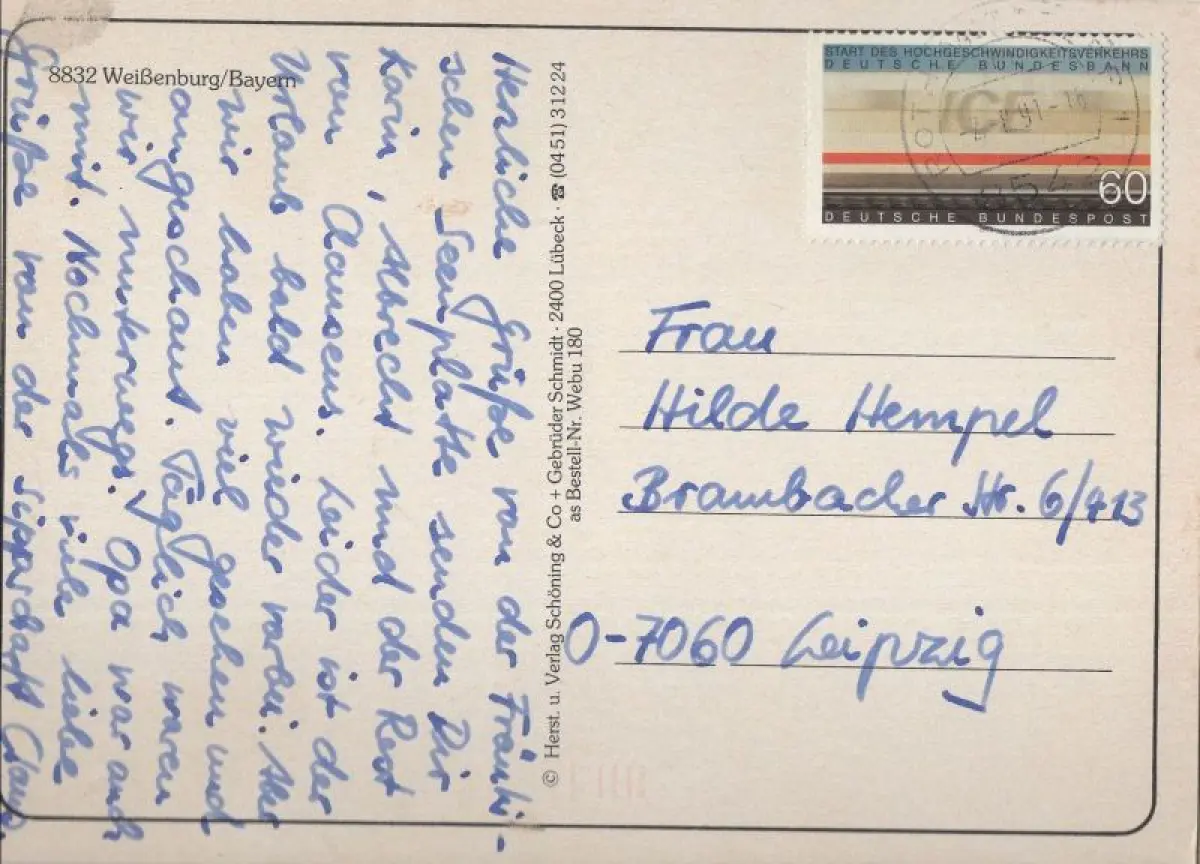 8832 Weißenburg/Bayern
Herzliche Grüße von der Fränki-
schen Seenplatte senden Dir
Karin, Albrecht und der Rest
von Clausens. Leider ist der
Urlaub bald wieder vorbei. Aber
wir haben viel gesehen und
angeschaut. Täglich waren
wir unterwegs. Opa war auch
mit. Nochmals viele liebe
Grüße von der Sippschaft
© Herst. u. Verlag Schöning & Co + Gebrüder Schmidt · 2400 Lübeck · ☎ (0451) 31224
as Bestell-Nr. Webu 180
START DES HOCHGESCHWINDIGKEITSVERKEHRS
DEUTSCHE BUNDESBAHN
ICE
60
DEUTSCHE BUNDESPOST
8542
Frau
Hilde Hempel
Brambacher Str. 6/413
O-7060 Leipzig